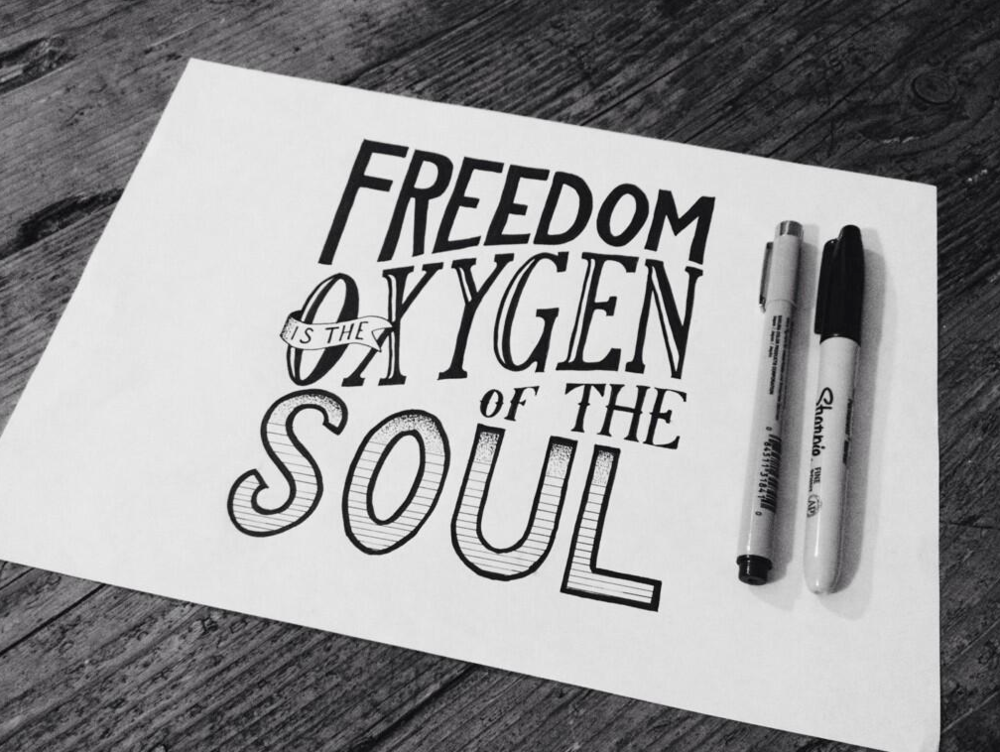 FREEDOM
IS THE
OXYGEN
OF THE
SOUL
Sharpie
FINE
AP